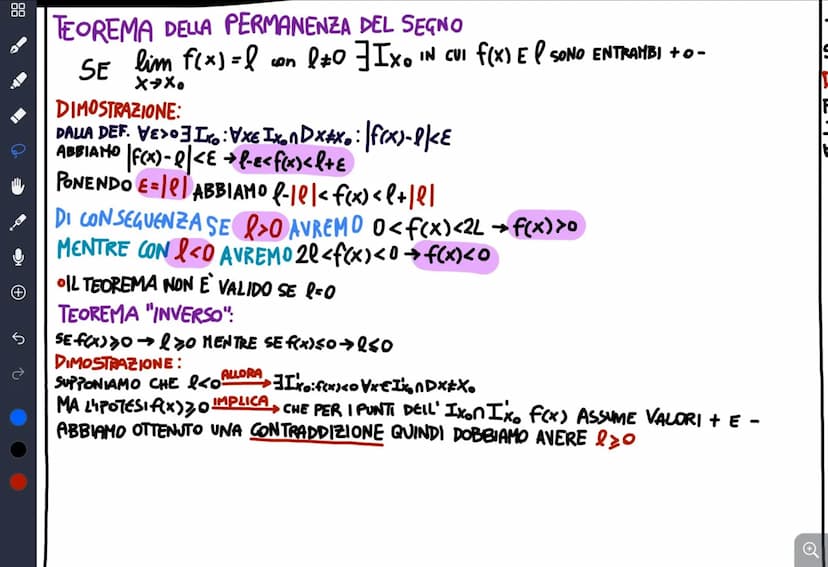 TEOREMA DELLA PERMANENZA DEL SEGNO
SE lim f(x)=l con l≠0 ∃Ix₀ IN CUI f(x) E l SONO ENTRAMBI + o -
x→x₀
DIMOSTRAZIONE:
DALLA DEF. ∀ε>0∃Ix₀:∀x∈Ix₀∩Dx≠x₀:|f(x)-l|<ε
ABBIAMO |f(x)-l|<ε→l-ε<f(x)<l+ε
PONENDO ε=|l| ABBIAMO l-|l|<f(x)<l+|l|
DI CONSEGUENZA SE l>0 AVREMO 0<f(x)<2L→f(x)>0
MENTRE CON l<0 AVREMO 2l<f(x)<0→f(x)<0
•IL TEOREMA NON È VALIDO SE l=0
TEOREMA "INVERSO":
SE f(x)≥0→l≥0 MENTRE SE f(x)≤0→l≤0
DIMOSTRAZIONE:
SUPPONIAMO CHE l<0 ALLORA→∃I'x₀:f(x)<0∀x∈I'x₀∩Dx≠x₀
MA L'IPOTESI f(x)≥0 IMPLICA→CHE PER I PUNTI DELL' Ix₀∩I'x₀ f(x) ASSUME VALORI + E -
ABBIAMO OTTENUTO UNA CONTRADDIZIONE QUINDI DOBBIAMO AVERE l≥0